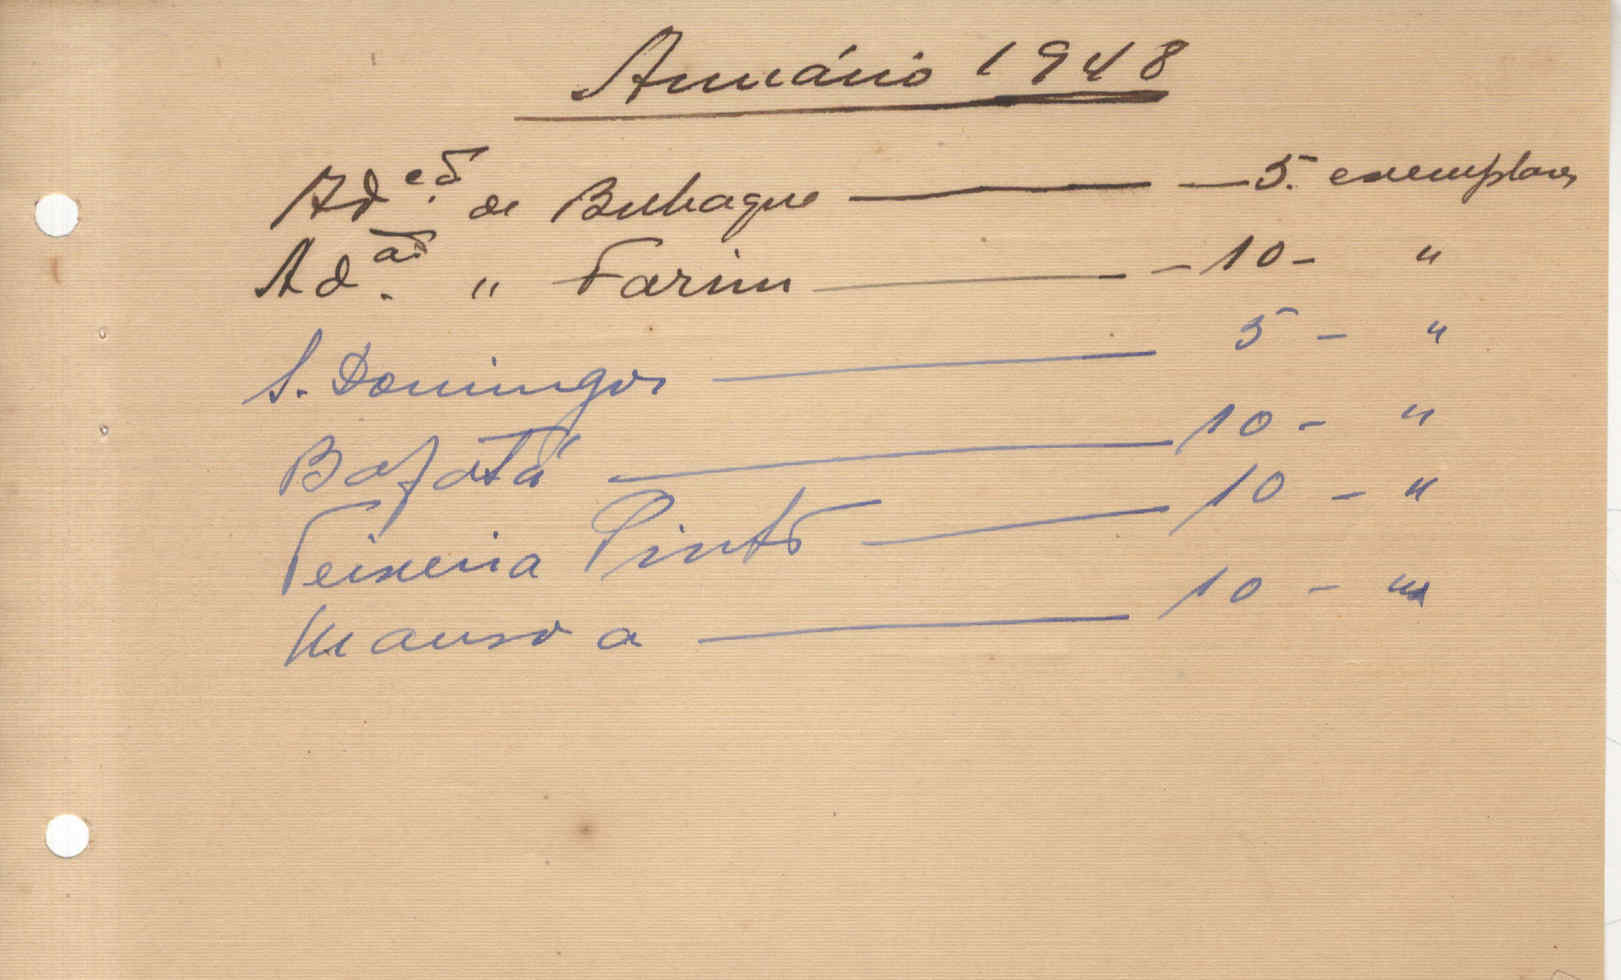 Anuário 1948
Ad.ão de Bubaque — 5. exemplares
Ad.ão " Farim — 10 - "
S. Domingos — 5 - "
Bafatá — 10 - "
Teixeira Pinto — 10 - "
Mansoa — 10 - "